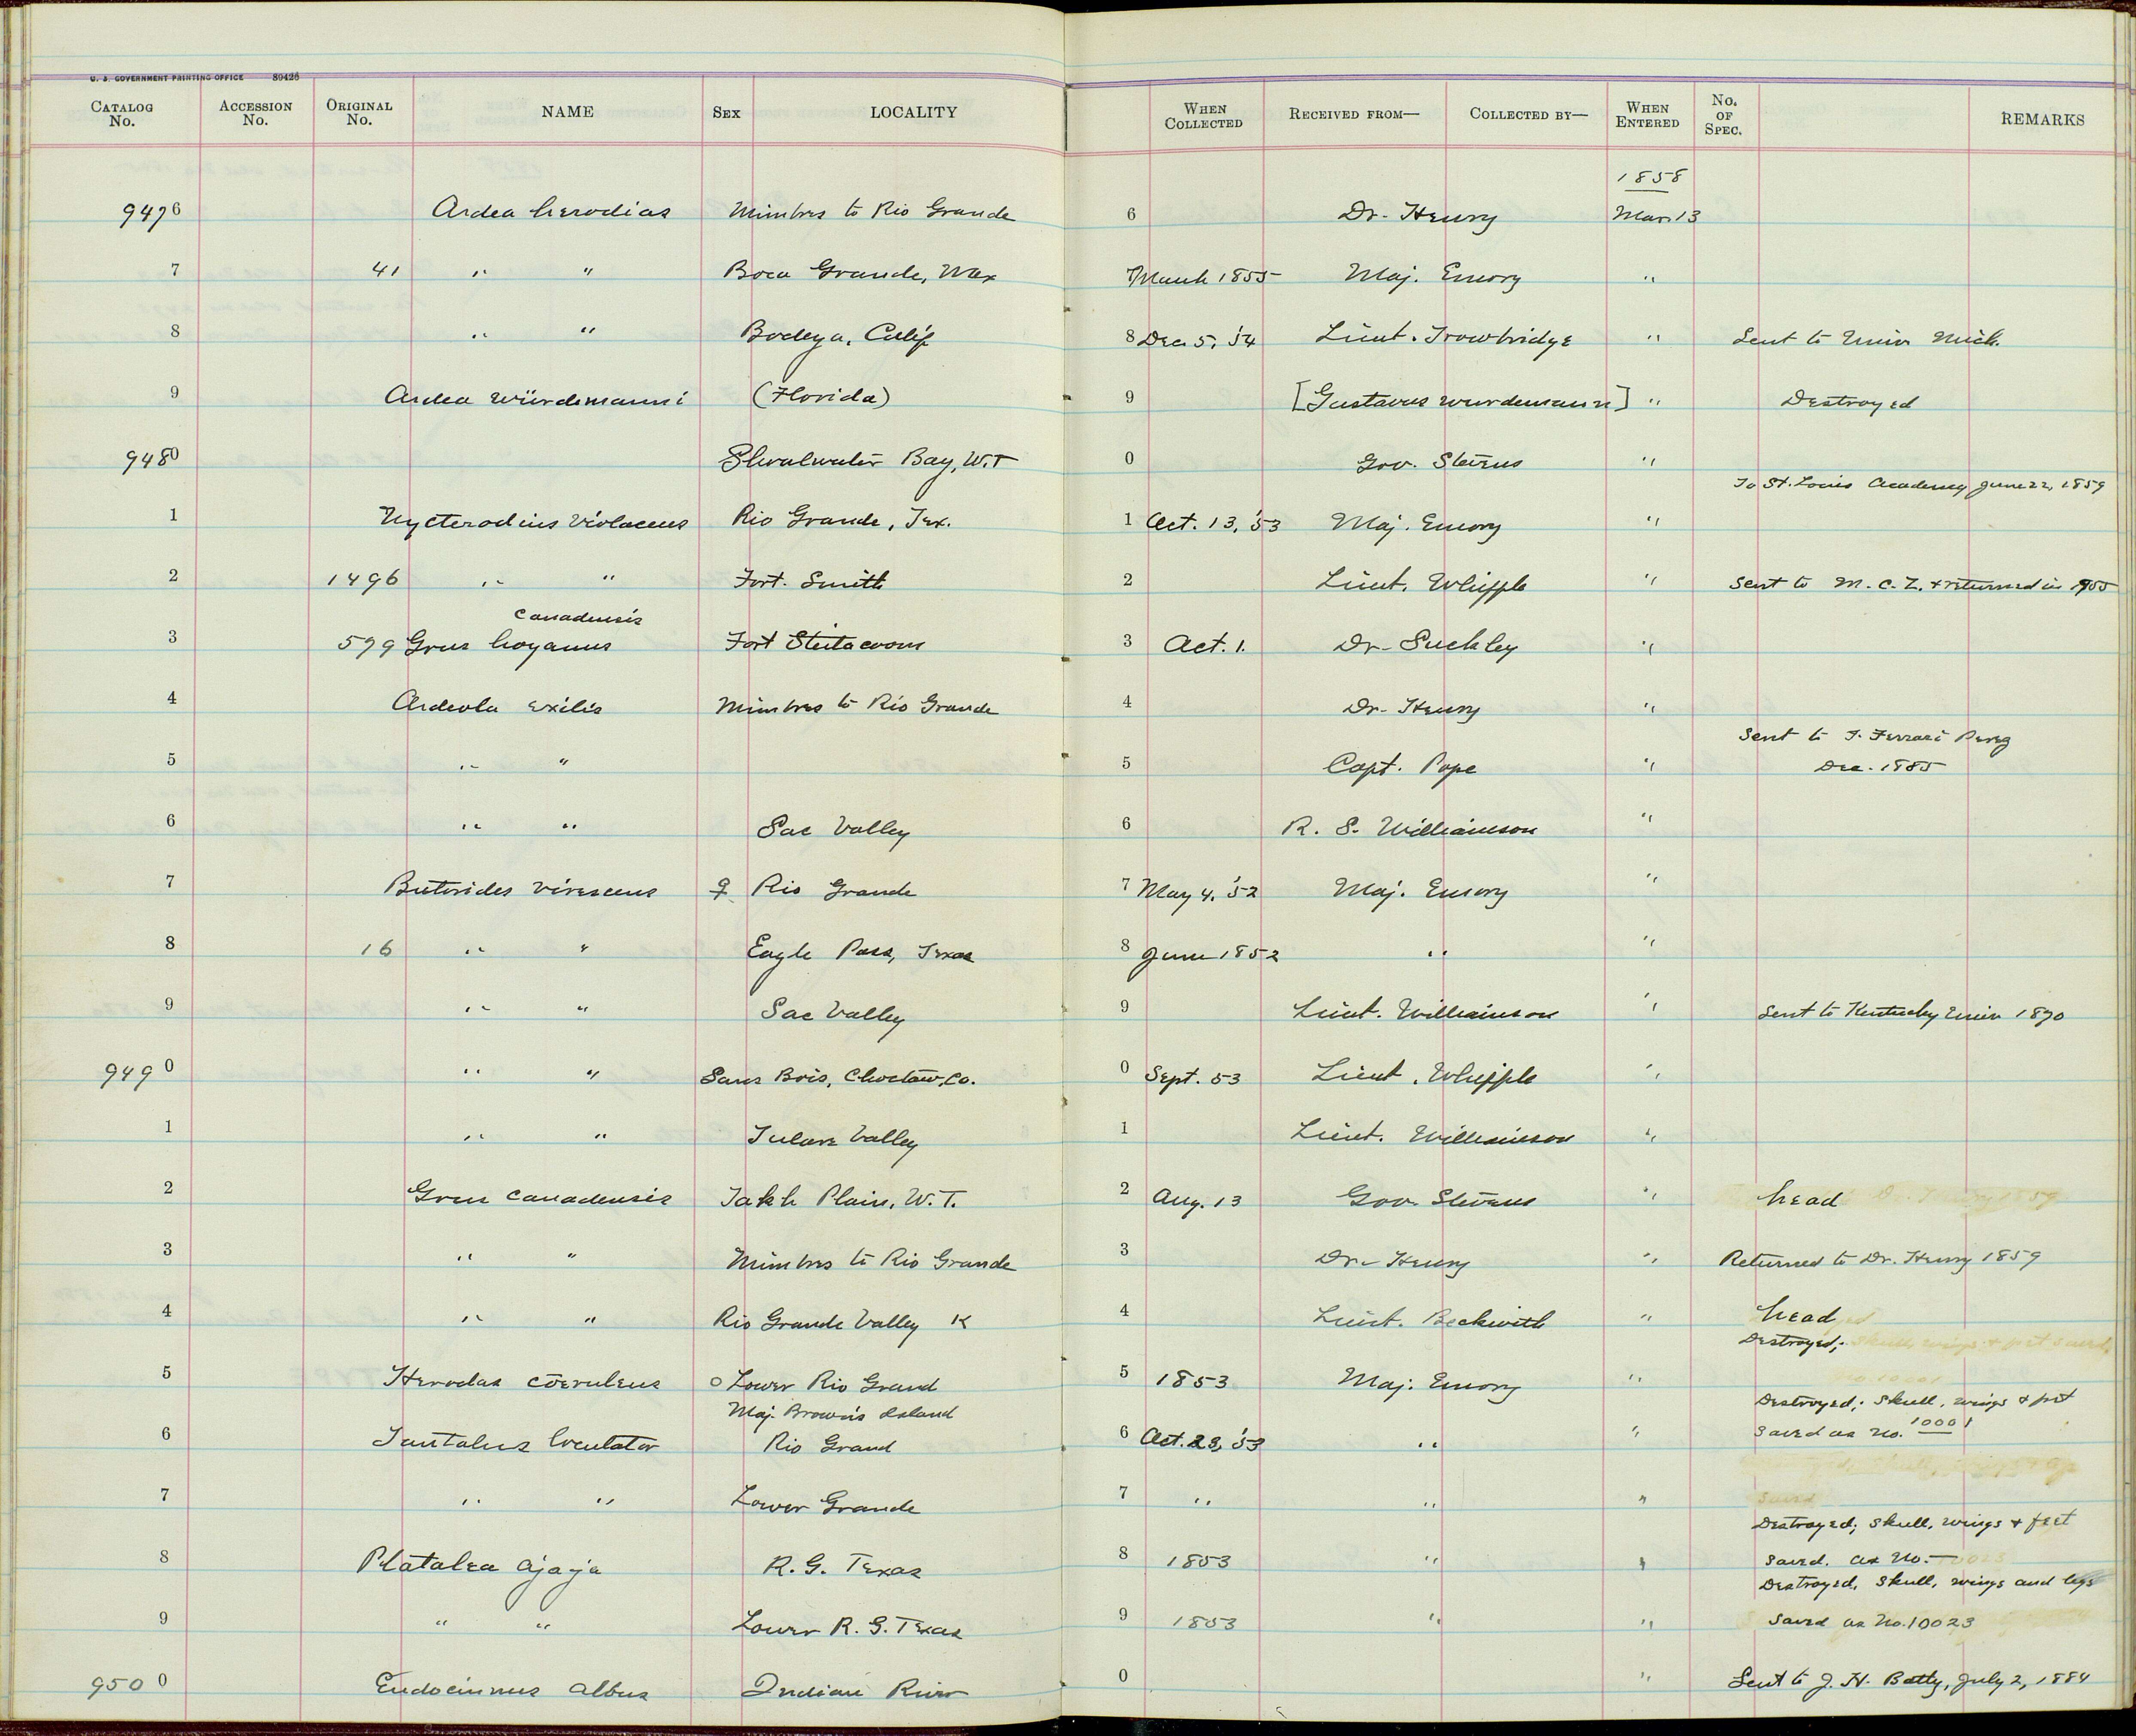 U. S. GOVERNMENT PRINTING OFFICE 89426
CATALOG No. ACCESSION No. ORIGINAL No. NAME SEX LOCALITY WHEN COLLECTED RECEIVED FROM— COLLECTED BY— WHEN ENTERED No. OF SPEC. REMARKS
1858
9476 Ardea herodias Mimbres to Rio Grande 6 Dr. Henry Mar. 13
7 41 " " Boca Grande, Mex 7 March 1855 Maj. Emory "
8 " " Bodega, Calif 8 Dec. 5, '54 Lieut. Trowbridge " Sent to Univ Mich.
9 Ardea würdemanni (Florida) 9 [Gustavus Wurdemann] " Destroyed
9480 Shoalwater Bay, W.T 0 Gov. Stevens "
To St. Louis Academy June 22, 1859
1 Nycterodius violaceus Rio Grande, Tex. 1 Oct. 13, '53 Maj. Emory "
2 1496 " " Fort. Smith 2 Lieut. Whipple " Sent to M. C. Z. + returned in 1955
canadensis
3 579 Grus hoyanus Fort Steilacoom 3 Oct. 1. Dr. Suckley "
4 Ardeola exilis Mimbres to Rio Grande 4 Dr. Henry "
Sent to F. Ferrari Perez
5 " " 5 Capt. Pope " Dec. 1885
6 " " Sac Valley 6 R. S. Williamson "
7 Butorides virescens ♀ Rio Grande 7 May 4, '52 Maj. Emory "
8 16 " " Eagle Pass, Texas 8 June 1852 " "
9 " " Sac Valley 9 Lieut. Williamson " Sent to Kentucky Univ 1870
9490 " " Sans Bois, Choctaw, Co. 0 Sept. 53 Lieut. Whipple "
1 " " Tulare Valley 1 Lieut. Williamson "
2 Grus canadensis Takh Plain, W.T. 2 Aug. 13 Gov. Stevens " head
3 " " Mimbres to Rio Grande 3 Dr. Henry " Returned to Dr. Henry 1859
4 " " Rio Grande Valley K 4 Lieut. Beckwith " head
Destroyed;
5 Herodas cœruleus o Lower Rio Grand 5 1853 Maj. Emory "
Maj. Brown's Island Destroyed; Skull, wings & feet
6 Tantalus loculator Rio Grand 6 Oct. 23, '53 " " saved as no. 10001
7 " " Lower Grande 7 " " "
Destroyed; skull, wings & feet
8 Platalea ajaja R. G. Texas 8 1853 " " saved. as No.—
Destroyed, skull, wings and legs
9 " " Lower R. G. Texas 9 1853 " " saved as No. 10023
9500 Eudocimus albus Indian River 0 " Sent to J. H. Batty, July 2, 1884